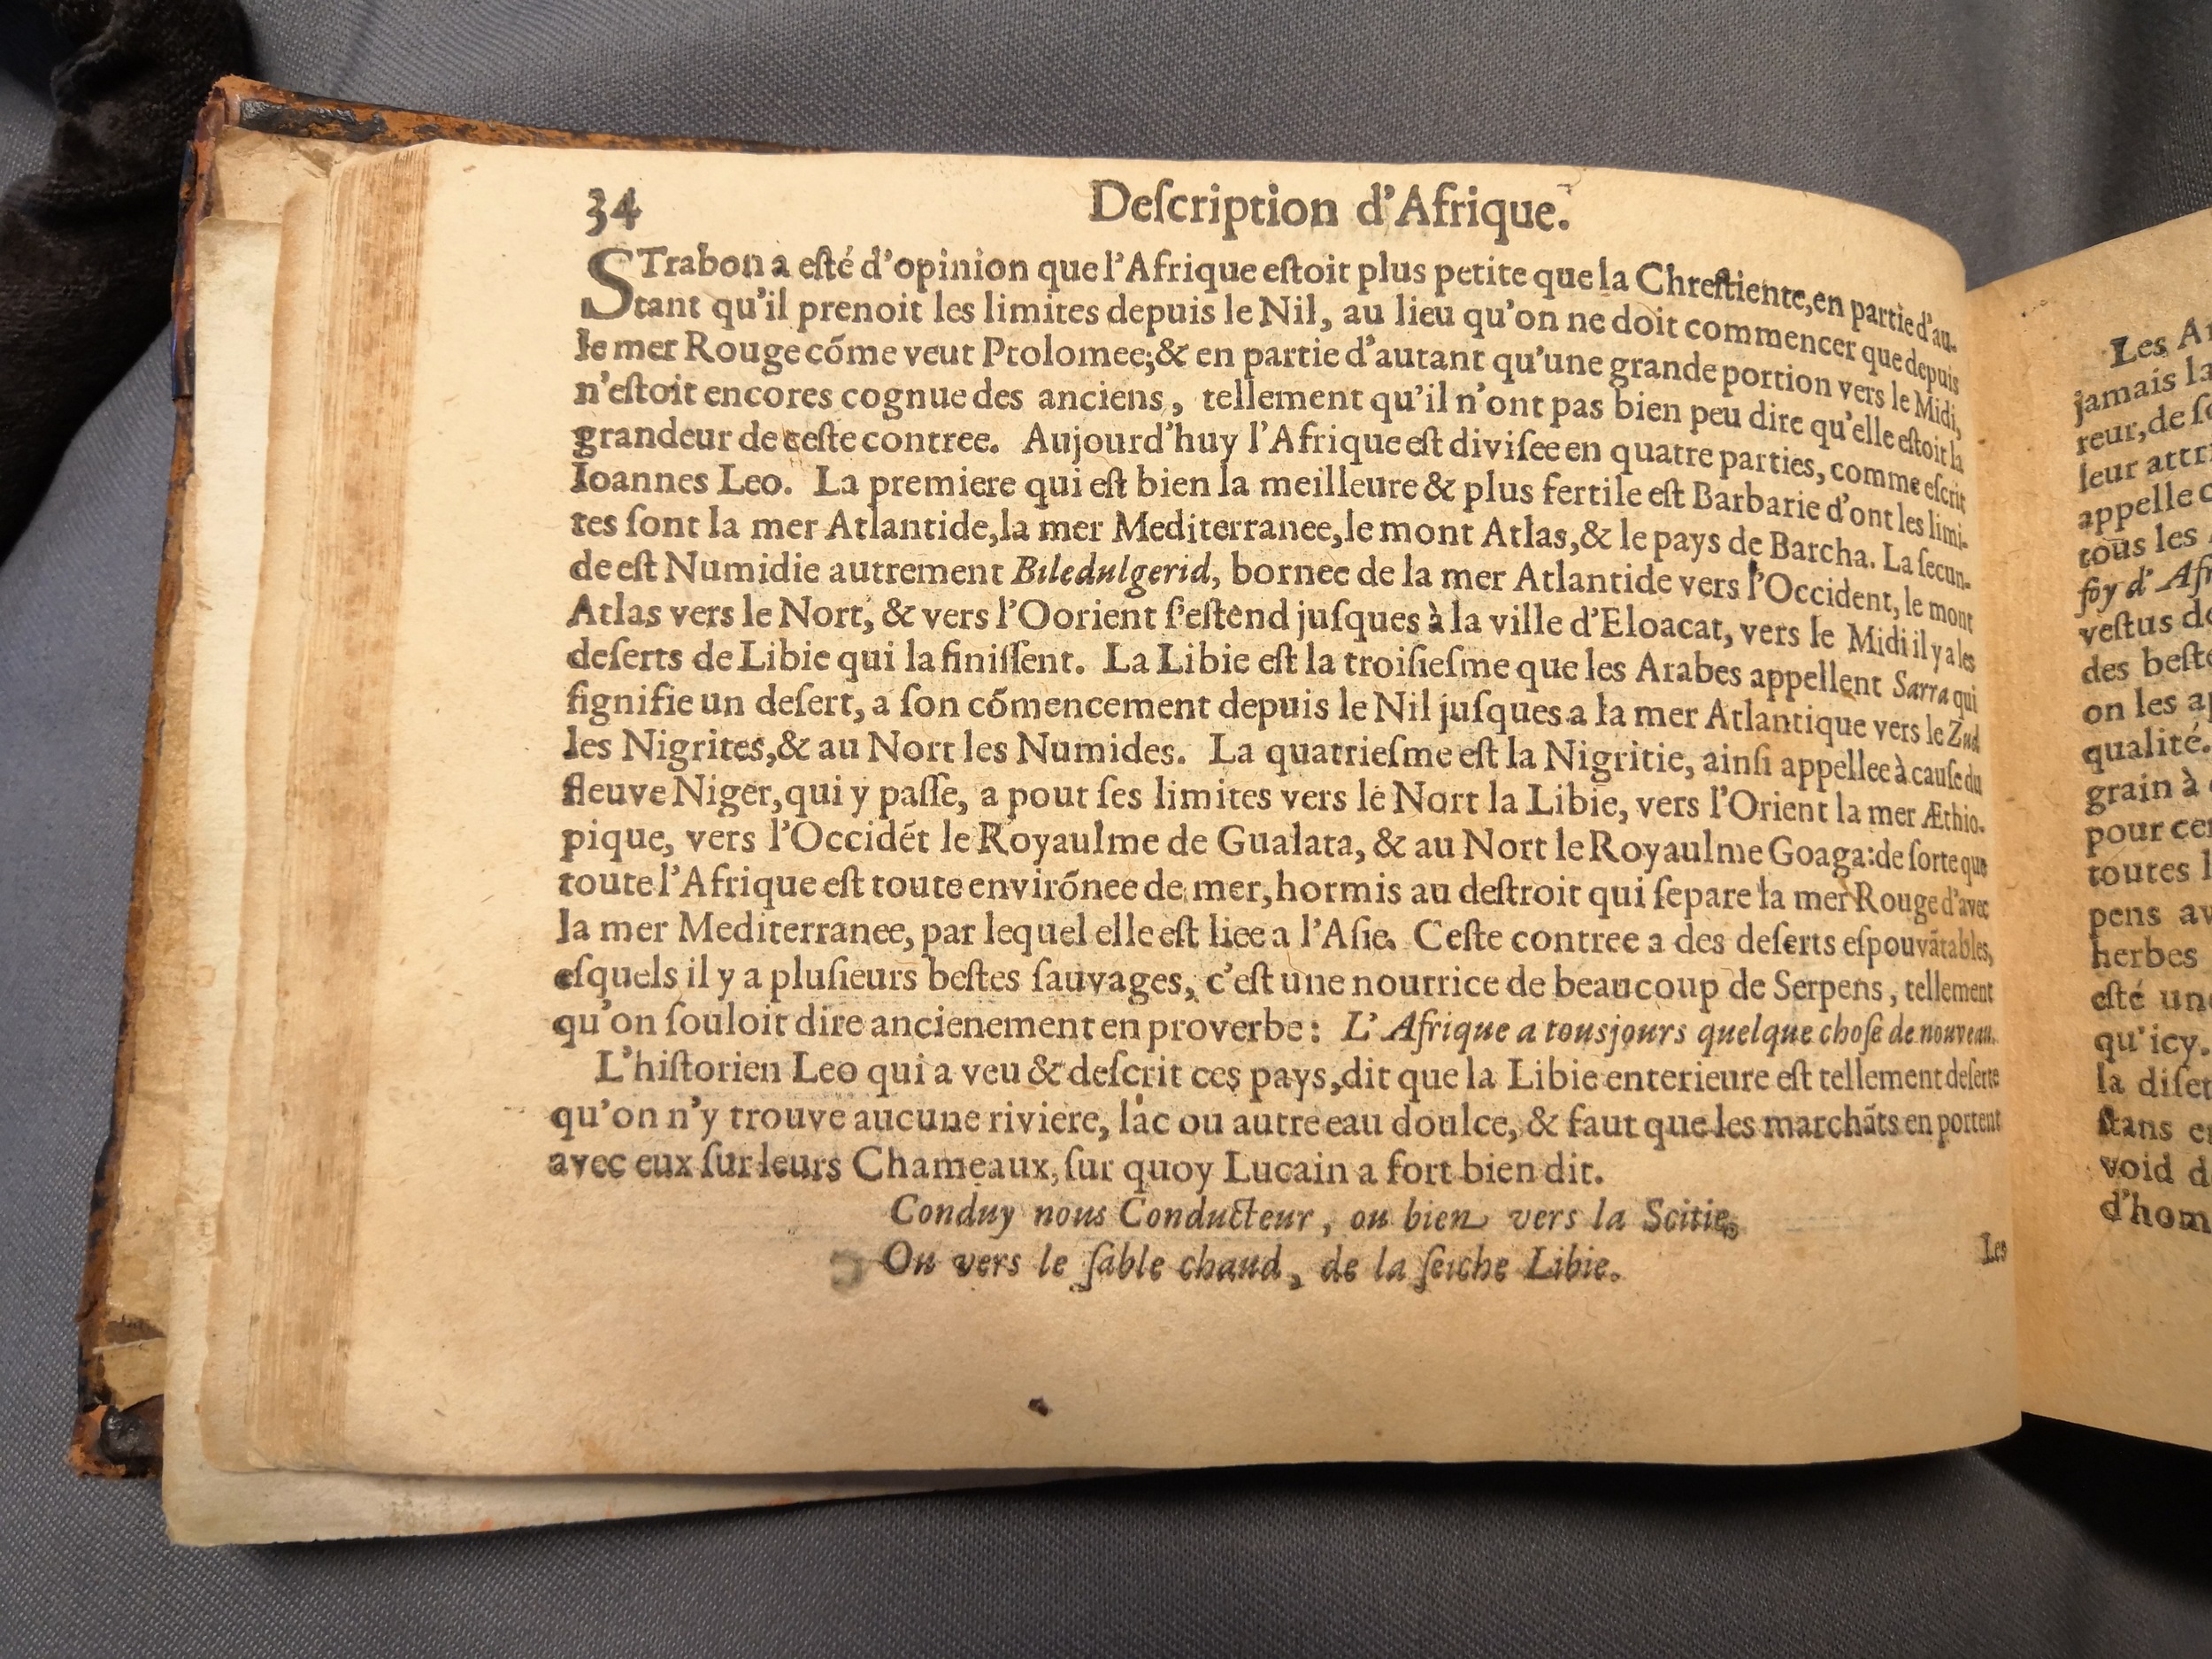 34
Deſcription d'Afrique.
STrabon a eſté d'opinion que l'Afrique eſtoit plus petite que la Chreſtiente, en partie d'au-
tant qu'il prenoit les limites depuis le Nil, au lieu qu'on ne doit commencer que depuis
le mer Rouge cõme veut Ptolomee; & en partie d'autant qu'une grande portion vers le Midi,
n'eſtoit encores cognue des anciens, tellement qu'il n'ont pas bien peu dire qu'elle eſtoit la
grandeur de ceſte contree. Aujourd'huy l'Afrique eſt diviſee en quatre parties, comme eſcrit
Ioannes Leo. La premiere qui eſt bien la meilleure & plus fertile eſt Barbarie d'ont les limi-
tes ſont la mer Atlantide, la mer Mediterranee, le mont Atlas, & le pays de Barcha. La ſecun-
de eſt Numidie autrement Biledulgerid, bornee de la mer Atlantide vers l'Occident, le mont
Atlas vers le Nort, & vers l'Oorient ſ'eſtend juſques à la ville d'Eloacat, vers le Midi il y a les
deſerts de Libie qui la finiſſent. La Libie eſt la troiſieſme que les Arabes appellent Sarra qui
ſignifie un deſert, a ſon cõmencement depuis le Nil juſques a la mer Atlantique vers le Zud
les Nigrites, & au Nort les Numides. La quatrieſme eſt la Nigritie, ainſi appellee à cauſe du
fleuve Niger, qui y paſſe, a pour ſes limites vers le Nort la Libie, vers l'Orient la mer Æthio-
pique, vers l'Occidẽt le Royaulme de Gualata, & au Nort le Royaulme Goaga: de ſorte que
toute l'Afrique eſt toute envirõnee de mer, hormis au deſtroit qui ſepare la mer Rouge d'avec
la mer Mediterranee, par lequel elle eſt liee a l'Aſie. Ceſte contree a des deſerts eſpouvãtables,
eſquels il y a pluſieurs beſtes ſauvages, c'eſt une nourrice de beaucoup de Serpens, tellement
qu'on ſouloit dire ancienement en proverbe: L'Afrique a tousjours quelque choſe de nouveau.
L'hiſtorien Leo qui a veu & deſcrit ces pays, dit que la Libie enterieure eſt tellement deſerte
qu'on n'y trouve aucune riviere, lac ou autre eau doulce, & faut que les marchãts en portent
avec eux ſur leurs Chameaux, ſur quoy Lucain a fort bien dit.
Conduy nous Conducteur, ou bien vers la Scitie,
Ou vers le ſable chaud, de la ſeiche Libie.
Les
Les
jamais
reur, de
leur
appelle
tous les
foy d'
veſtus
des
on les
qualité.
grain à
pour
toutes
pens
herbes
eſté
qu'icy.
la
ſtans
void